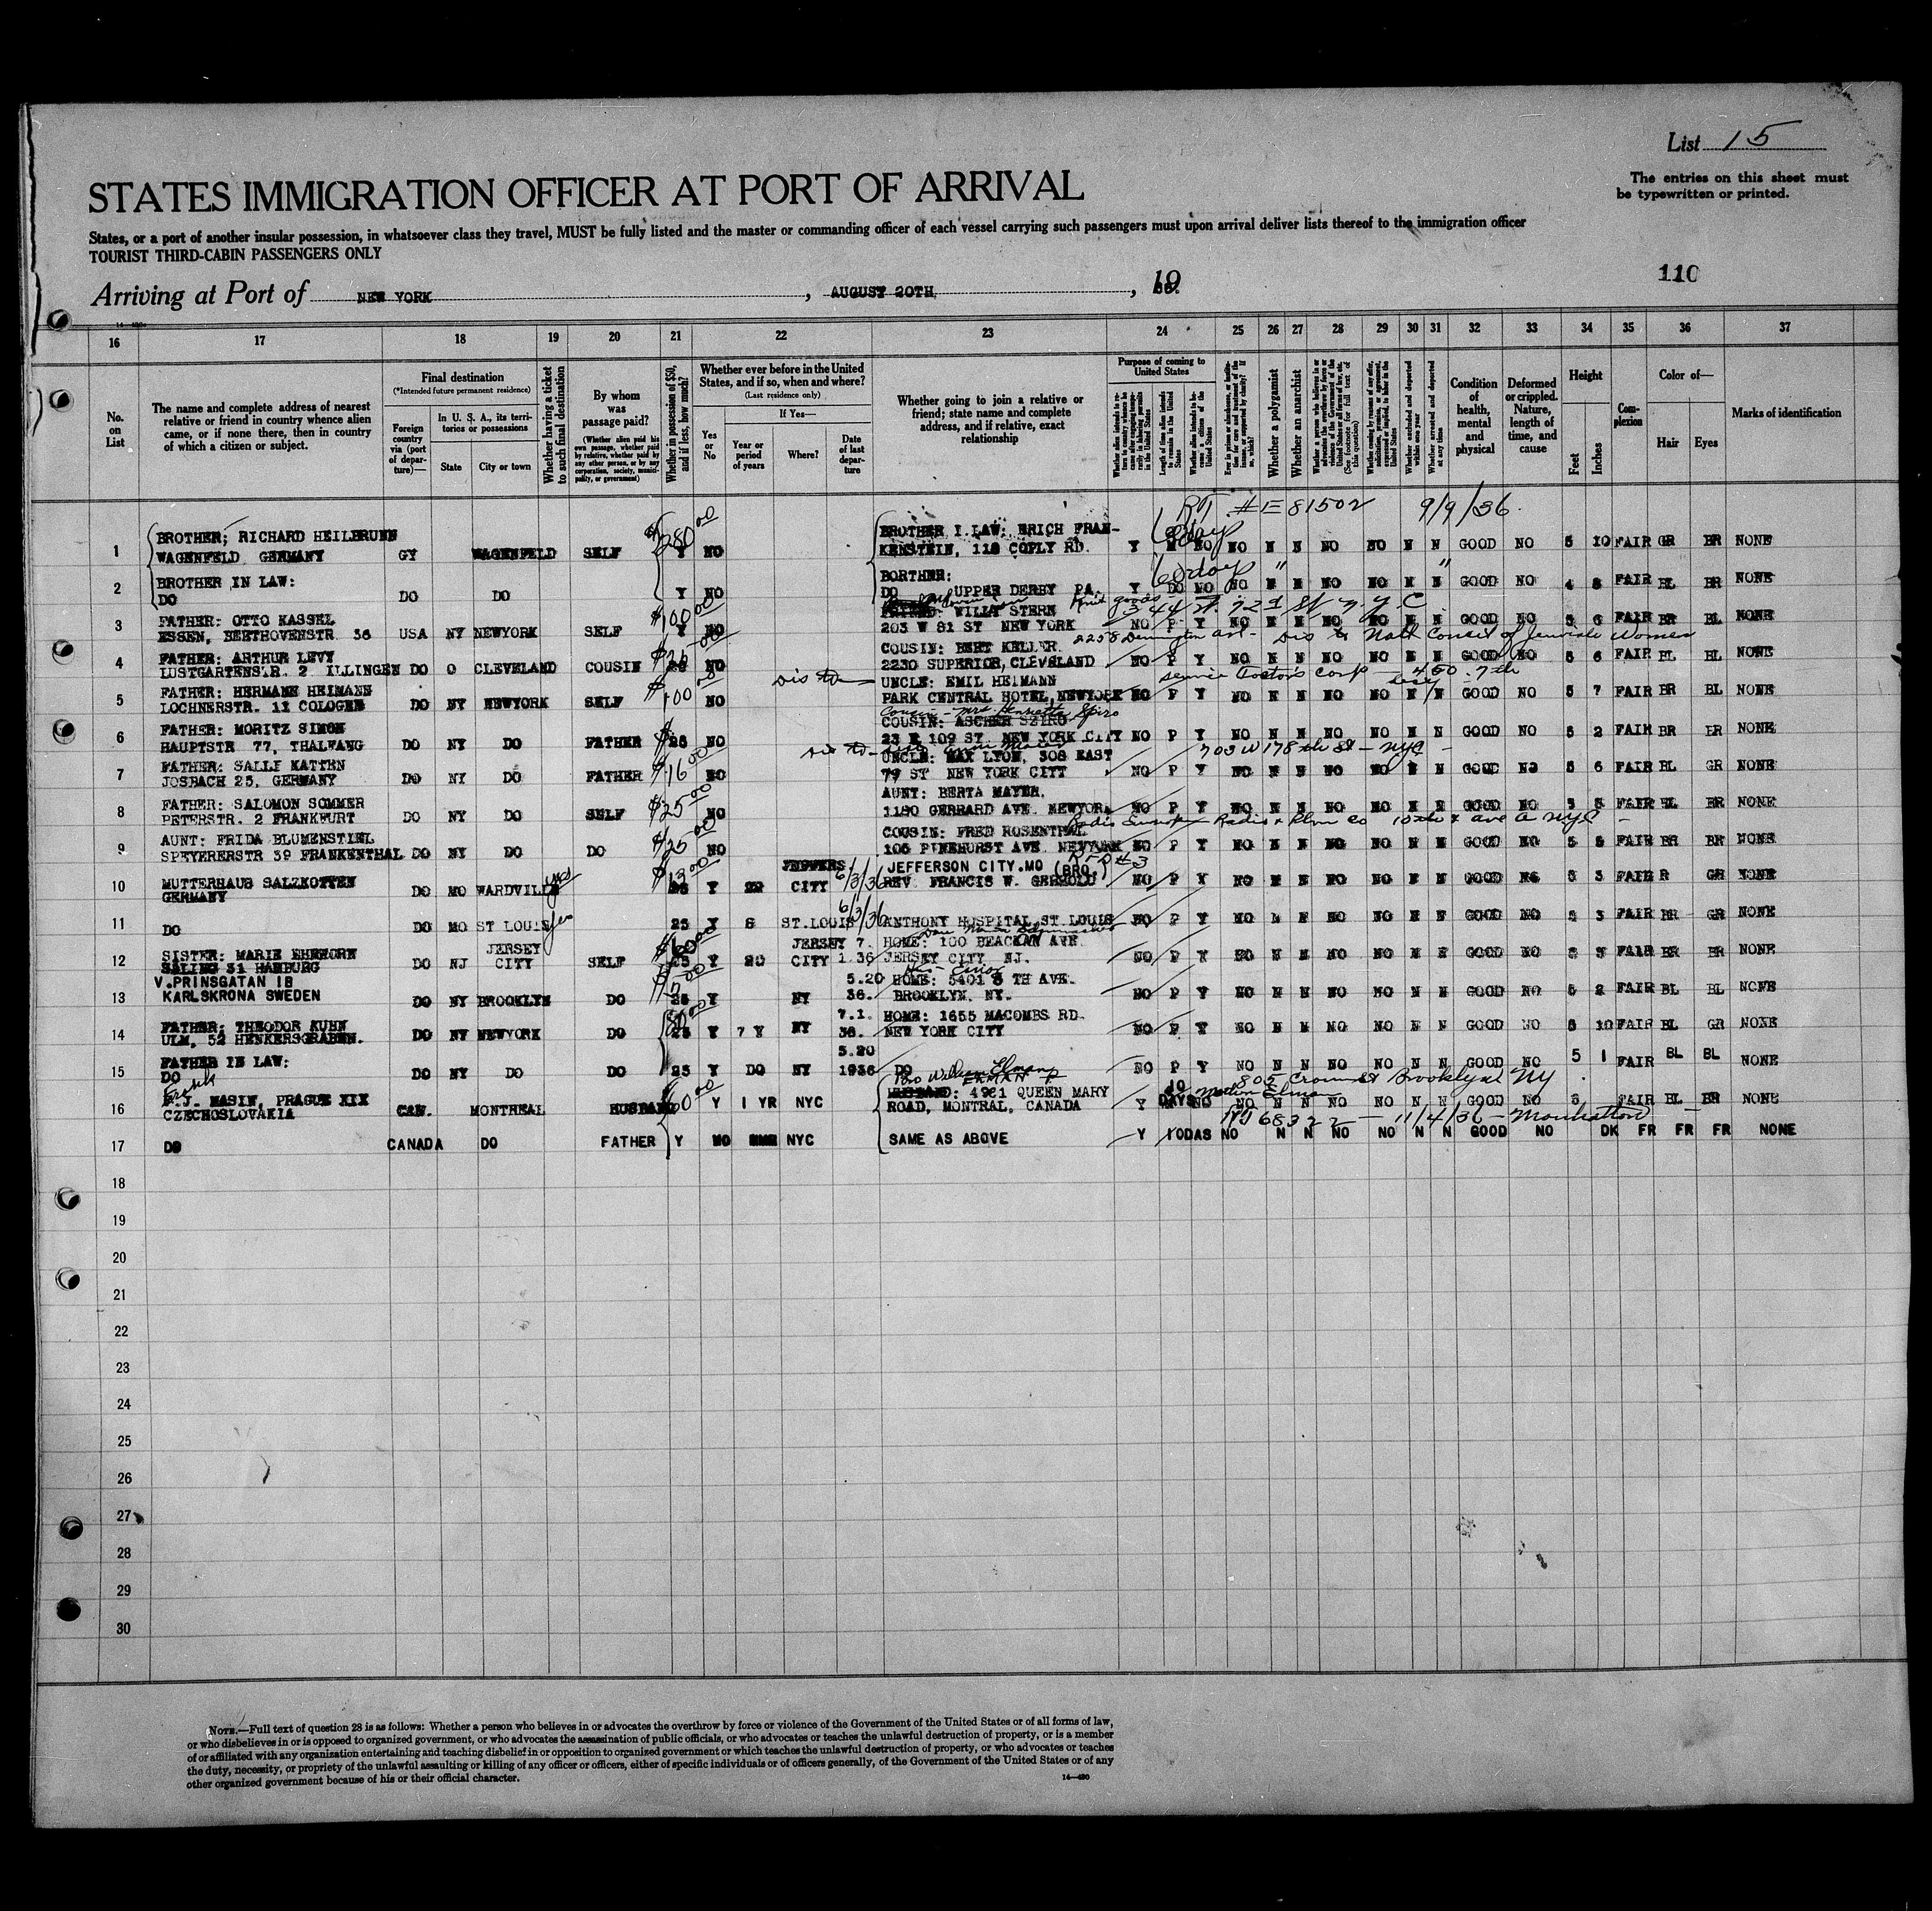 List 15
STATES IMMIGRATION OFFICER AT PORT OF ARRIVAL
The entries on this sheet must
be typewritten or printed.
States, or a port of another insular possession, in whatsoever class they travel, MUST be fully listed and the master or commanding officer of each vessel carrying such passengers must upon arrival deliver lists thereof to the immigration officer
TOURIST THIRD-CABIN PASSENGERS ONLY
110
Arriving at Port of NEW YORK, AUGUST 20TH, 19
16 17 18 19 20 21 22 23 24 25 26 27 28 29 30 31 32 33 34 35 36 37
No. on List
The name and complete address of nearest relative or friend in country whence alien came, or if none there, then in country of which a citizen or subject.
Final destination
(*Intended future permanent residence)
Foreign country via (port of departure)—
In U. S. A., its territories or possessions
State
City or town
Whether having a ticket to such final destination
By whom was passage paid?
(Whether alien paid his own passage, whether paid by relative, whether paid by any other person, or by any corporation, society, municipality, or government)
Whether in possession of $50, and if less, how much?
Whether ever before in the United States, and if so, when and where?
(Last residence only)
Yes or No
If Yes—
Year or period of years
Where?
Date of last departure
Whether going to join a relative or friend; state name and complete address, and if relative, exact relationship
Purpose of coming to United States
Length of time alien intends to remain in the United States
Whether alien intends to become a citizen of the United States
Whether a polygamist
Whether an anarchist
(See footnote for full text of this question)
Whether excluded and deported within one year
Whether arrested and deported at any time
Condition of health, mental and physical
Deformed or crippled. Nature, length of time, and cause
Height
Feet
Inches
Complexion
Color of—
Hair
Eyes
Marks of identification
RT #E 81502 9/9/36
1 BROTHER; RICHARD HEILBRUNN BROTHER I.LAW: ERICH FRAN-
WAGENFELD GERMANY GY WAGENFELD SELF $280.00 Y NO KENSTEIN, 118 COPLY RD. Y NO NO N N NO NO N N GOOD NO 5 10 FAIR GR BR NONE
60 days
2 BROTHER IN LAW: BORTHER:
DO DO DO Y NO DO UPPER DERBY PA. Y DO NO NO N N NO NO N N GOOD NO 4 8 FAIR BL BR NONE
344 W. 72d St N.Y.C
3 FATHER: OTTO KASSEL WILLY STERN
ESSEN, BEETHOVENSTR. 36 USA NY NEWYORK SELF $100.00 Y NO 203 W 81 ST NEW YORK NO P Y NO N N NO NO N N GOOD NO 5 6 FAIR BR BL NONE
Dis to Natl Council of Jewish Women
4 FATHER: ARTHUR LEVY COUSIN: BERT KELLER.
LUSTGARTENSTR. 2 ILLINGEN DO O CLEVELAND COUSIN NO 2230 SUPERIOR, CLEVELAND NO P Y NO N N NO NO N N GOOD NO 5 6 FAIR BL BL NONE
Dis to
5 FATHER: HERMANN HEIMANN UNCLE: EMIL HEIMANN
LOCHNERSTR. 11 COLOGEN DO NY NEWYORK SELF $100.00 NO PARK CENTRAL HOTEL, NEWYORK NO P Y NO N N NO NO N N GOOD NO 5 7 FAIR BR BL NONE
Cousin - Mrs. Henrietta Spiro
6 FATHER: MORITZ SIMON COUSIN: ASCHER SPIRO
HAUPTSTR 77, THALFANG DO NY DO FATHER NO 23 E 109 ST. NEW YORK CITY NO P Y NO N N NO NO N N GOOD NO 5 2 FAIR BR BR NONE
703 W 178th St - NYC
7 FATHER: SALLI KATTEN UNCLE: MAX LYON, 308 EAST
JOSBACH 25, GERMANY DO NY DO FATHER $16.00 NO 79 ST NEW YORK CITY NO P Y NO N N NO NO N N GOOD NO 5 6 FAIR BL GR NONE
8 FATHER: SALOMON SOMMER AUNT: BERTA MAYER.
PETERSTR. 2 FRANKFURT DO NY DO SELF $25.00 NO 1180 GERRARD AVE. NEWYORK NO P Y NO N N NO NO N N GOOD NO 5 FAIR BL BR NONE
9 AUNT: FRIDA BLUMENSTIEL COUSIN: FRED ROSENTHAL
SPEYERERSTR 39 FRANKENTHAL DO NY DO DO $25.00 NO 106 PINEHURST AVE. NEWYORK NO P Y NO N N NO NO N N GOOD NO 5 5 FAIR BR BR NONE
10 MUTTERHAUS SALZKOTTEN JEFFERSON CITY.MO (BRO.) RFD #3
GERMANY DO MO WARDVILLE yes $13.00 Y CITY 6/3/36 REV. FRANCIS W. NO P Y NO N N NO NO N N GOOD NO 5 3 FAIR GR NONE
11 DO DO MO ST LOUIS yes 25 Y 8 ST.LOUIS 6/3/36 ANTHONY HOSPITAL, ST. LOUIS NO P Y NO N N NO NO N N GOOD NO 5 3 FAIR BR GR NONE
12 SISTER: MARIE EHEHORN JERSEY JERSEY 7. HOME: 100 BEACON AVE.
31 HAMBURG DO NJ CITY SELF Y CITY 1 36 JERSEY CITY NJ. NO P Y NO N N NO NO N N GOOD NO 5 FAIR BR BR NONE
13 V.PRINSGATAN 18 5.20 HOME: 5401 8 TH AVE.
KARLSKRONA SWEDEN DO NY BROOKLYN DO 25 Y NY 36. BROOKLYN. NY. NO P Y NO N N NO NO N N GOOD NO 5 2 FAIR BL BL NONE
14 FATHER: THEODOR KUHN 7.1. HOME: 1655 MACOMBS RD.
ULM, 52 HENKERSGRABEN. DO NY NEWYORK DO 25 Y 7 Y NY 36. NEW YORK CITY NO P Y NO N N NO NO N N GOOD NO 5 10 FAIR BL GR NONE
15 FATHER IN LAW: 5.20
DO DO NY DO DO 25 Y DO NY 1936 DO NO P Y NO N N NO NO N N GOOD NO 5 1 FAIR BL BL NONE
Bro William Elman 805 Crown St Brooklyn NY
16 MASIN, PRAGUE XIX HUSBAND: 4981 QUEEN MARY
CZECHOSLOVAKIA CAN. MONTREAL HUSBAND Y 1 YR NYC ROAD, MONTRAL, CANADA Y 10 DAYS NO NO N N NO NO N N GOOD NO 5 FAIR BL BR NONE
68322 - 11/4/36 - Manhattan
17 DO CANADA DO FATHER Y NO NYC SAME AS ABOVE Y 10DAS NO N N NO NO N N GOOD NO DK FR FR FR NONE
18
19
20
21
22
23
24
25
26
27
28
29
30
NOTE.—Full text of question 28 is as follows: Whether a person who believes in or advocates the overthrow by force or violence of the Government of the United States or of all forms of law,
or who disbelieves in or is opposed to organized government, or who advocates the assassination of public officials, or who advocates or teaches the unlawful destruction of property, or is a member
of or affiliated with any organization entertaining and teaching disbelief in or opposition to organized government or which teaches the unlawful destruction of property, or who advocates or teaches
the duty, necessity, or propriety of the unlawful assaulting or killing of any officer or officers, either of specific individuals or of officers generally, of the Government of the United States or of any
other organized government because of his or their official character.
14—430